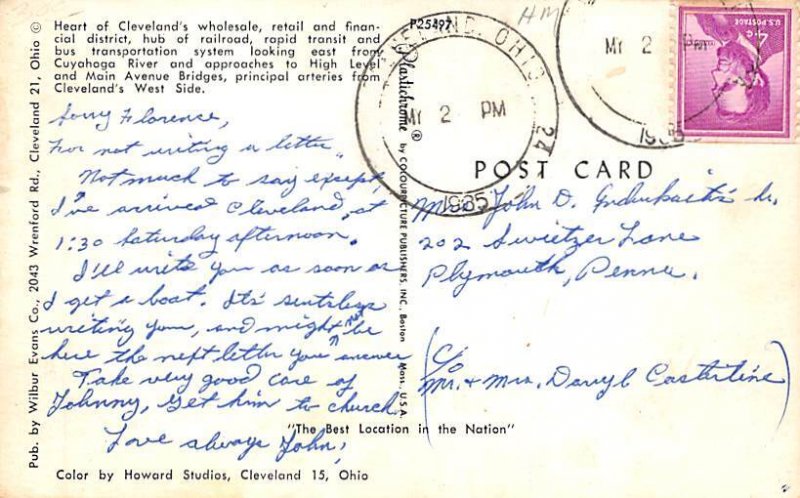 Heart of Cleveland's wholesale, retail and finan-
cial district, hub of railroad, rapid transit and
bus transportation system looking east from
Cuyahoga River and approaches to High Level
and Main Avenue Bridges, principal arteries from
Cleveland's West Side.
Sorry Florence,
For not writing a letter.
Not much to say except,
I've arrived Cleveland, at
1:30 Saturday afternoon.
I'll write you as soon as
I get a boat. It's sentsless
writing you, and might not be
here the next letter you answer
Take very good care of
Johnny, get him to church
Love always John,
Color by Howard Studios, Cleveland 15, Ohio
Pub. by Wilbur Evans Co., 2043 Wrenford Rd., Cleveland 21, Ohio ©
P25497
Plastichrome ® by COLOURPICTURE PUBLISHERS, INC., Boston Mass., U.S.A.
HM
OHIO
24
My 2 PM
My 2 PM
4¢
U.S. POSTAGE
POST CARD
Mrs. John D.
202 Switzer Lane
Plymouth, Penna.
(C/o
Mr. + Mrs. Darryl Casterline)
"The Best Location in the Nation"